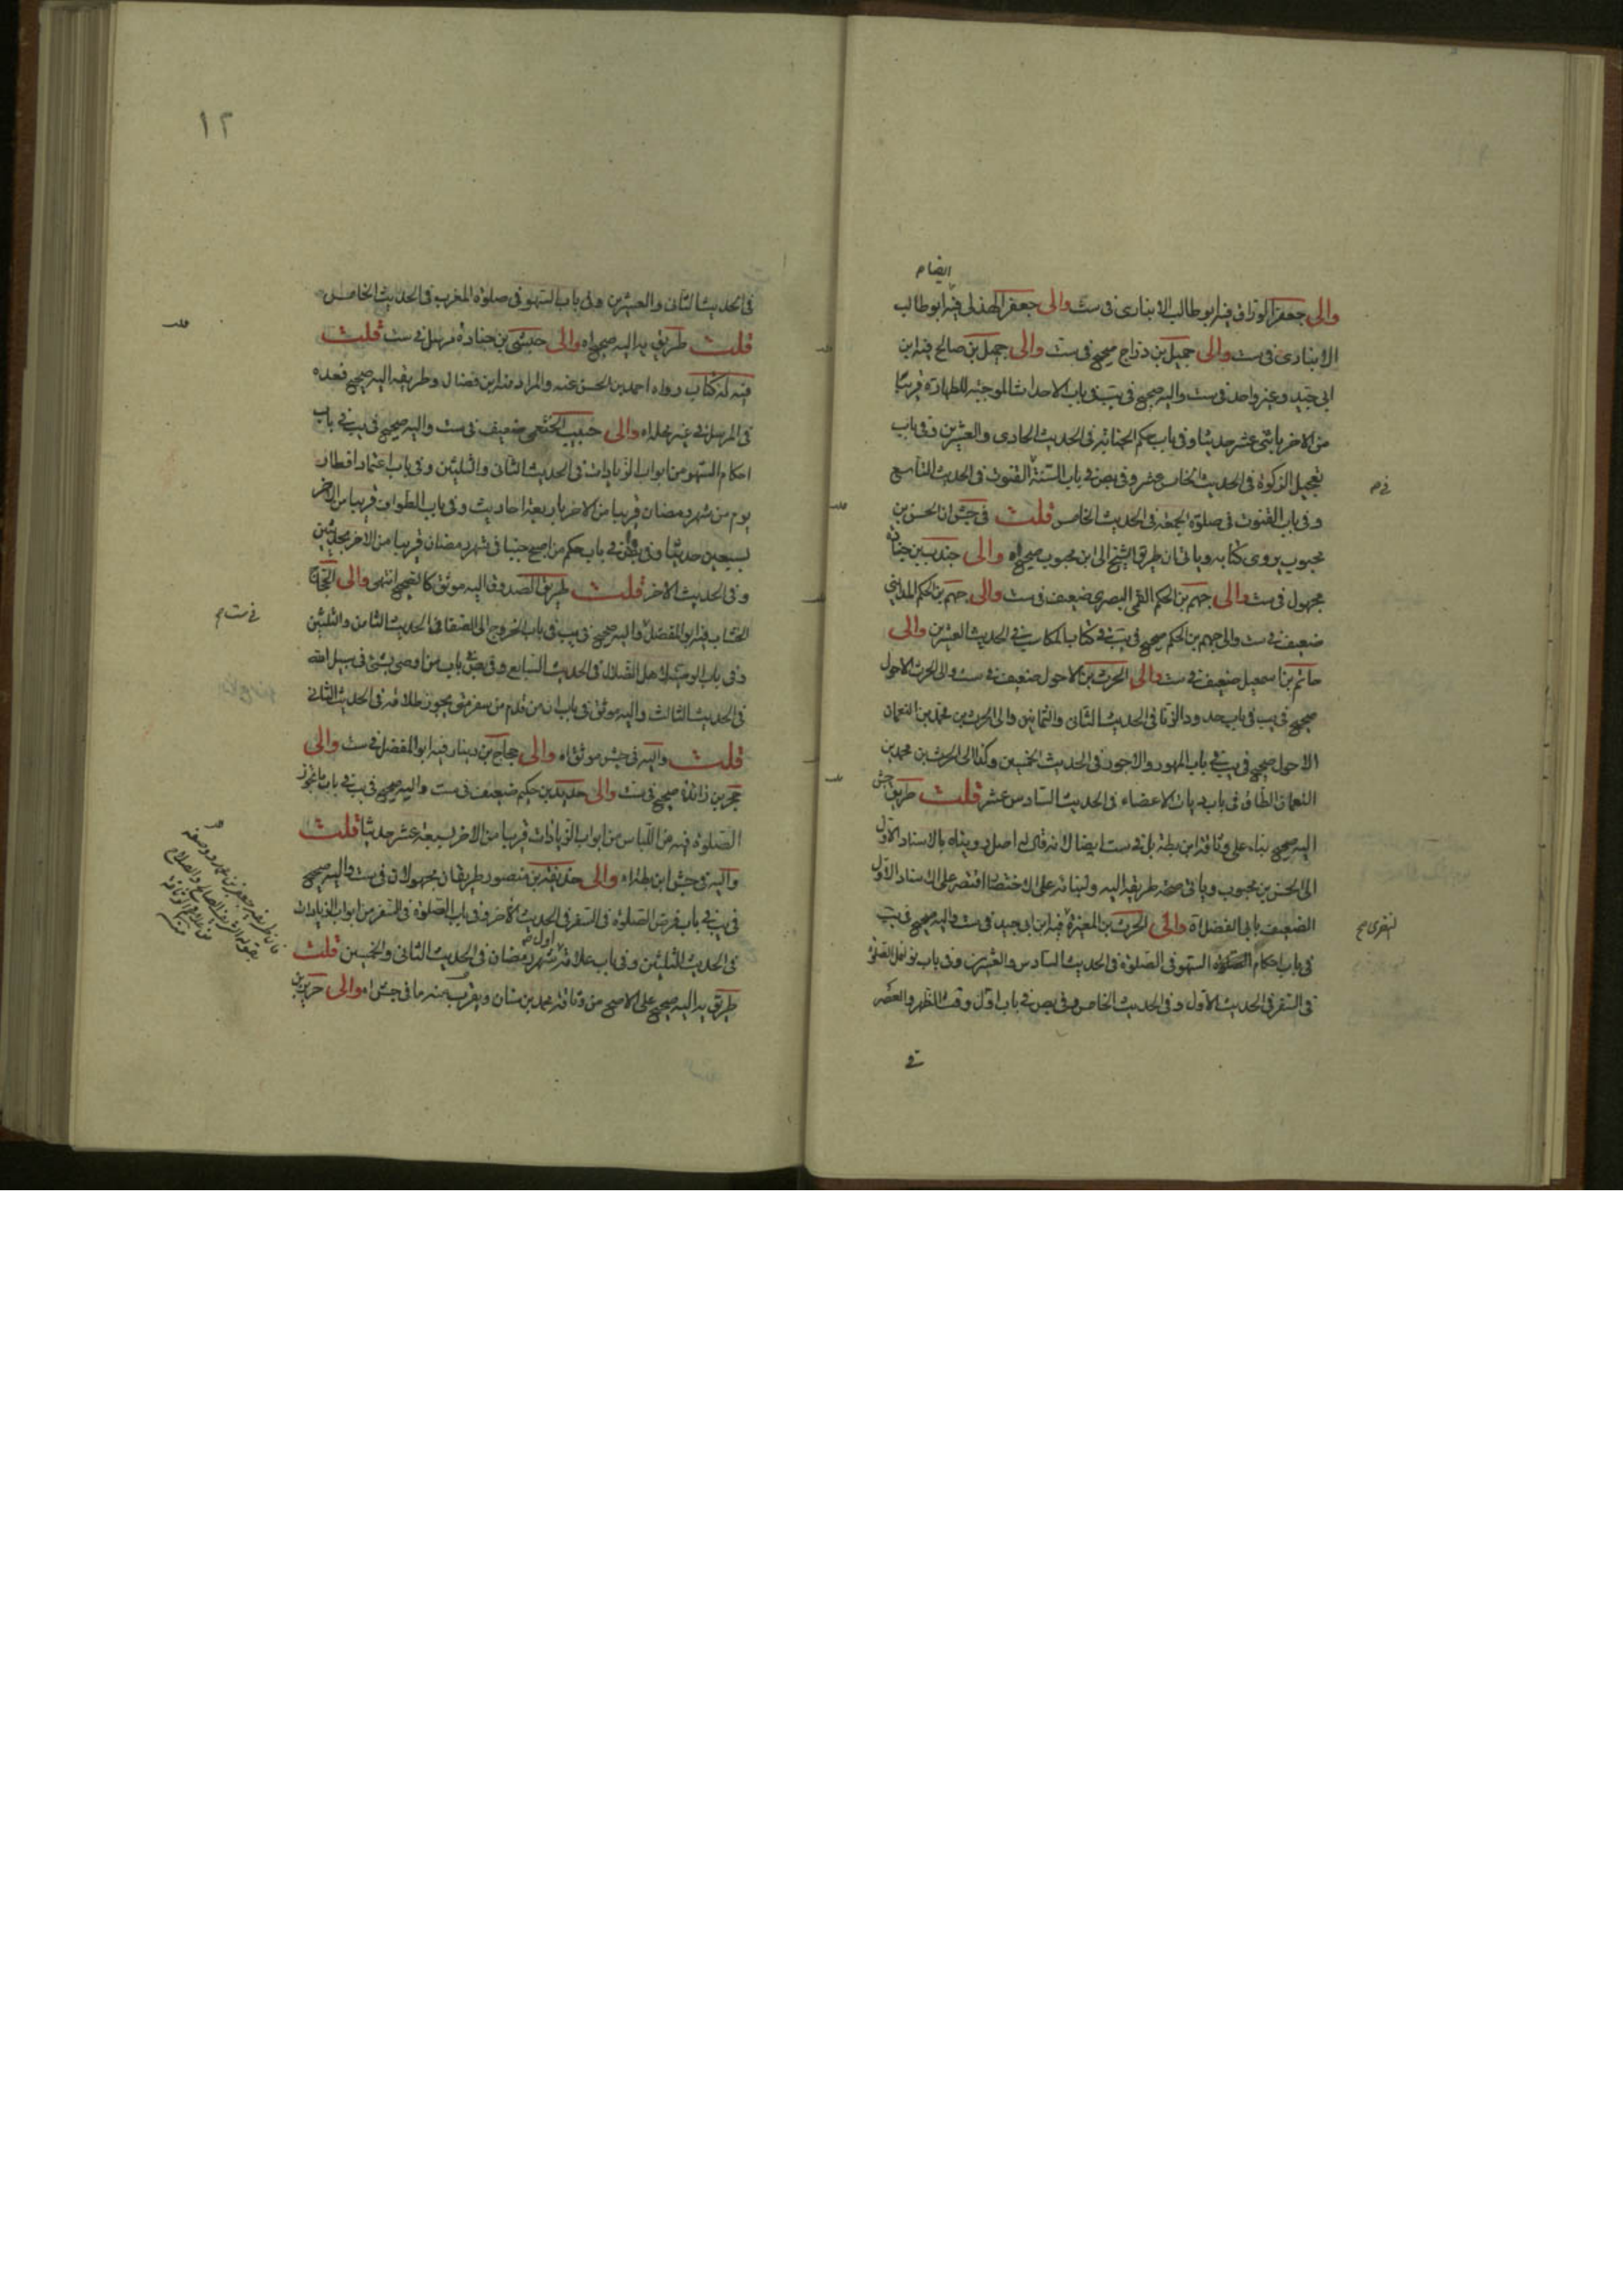 ايضا م
والى جعفر الوراق فيه ابوطالب الانبارى فى ست والى جعفر الهذلى فيه ابوطالب
الانبارى فى ست والى جميل بن دراج صحيح فى ست والى جميل بن صالح فيه ابن
ابى جيد وغير واحد فى ست واليه صحيح فى يب فى باب الاحداث الموجبة للطهارة قريبا
من الاخر باثنى عشر حديثا وفى باب حكم الجنابة فى الحديث الحادى والعشرين وفى باب
تعجيل الزكوة فى الحديث الخامس عشر وفى بص فى باب السنة القنوت فى الحديث التاسع
فى م
وفى باب القنوت فى صلوة الجمعة فى الحديث الخامس قلت فى جش ان الحسن بن
محبوب يروى كتابه وياتى ان طريق الشيخ الى ابن محبوب صحيح اه والى جندب بن جنادة
مجهول فى ست والى جهم بن الحكم القمى البصرى ضعيف فى ست والى جهم بن الحكم المداينى
ضعيف فى ست والى جهم بن الحكم صحيح فى يب فى كتاب المكاسب فى الحديث العشرين والى
حاتم بن اسمعيل ضعيف فى ست والى الحرث بن الاحول ضعيف فى ست والى الحرث الاحول
صحيح فى يب فى باب حدود الزنا فى الحديث الثانى والثمانين والى الحرث بن محمد بن النعمان
الاحول صحيح فى يب فى باب المهور والاجور فى الحديث الخمسين وكذا الى الحرث بن محمد بن
النعمان الطاق فى باب ديات الاعضاء فى الحديث السادس عشر قلت طريق جش
اليه صحيح بناء على وثاقة ابن بطة بل فى ست ايضا لانه قال له اصل رويناه بالاسناد الاول
الى الحسن بن محبوب وياتى صحة طريقه اليه ولبنائه على الاختصار اقتصر على الاسناد الاول
الضعيف بابى المفضل اه والى الحرث بن المغيرة فيه ابن ابى جيد فى ست واليه صحيح فى يب
النصرى صح
فى باب احكام السهو فى الصلوة فى الحديث السادس والعشرين وفى باب نوافل الصلوة
فى السفر فى الحديث الاول وفى الحديث الخامس وفى بص فى باب اول وقت الظهر والعصر
فى
١٢
فى الحديث الثانى والعشرين وفى باب السهو فى صلوة المغرب فى الحديث الخامس
قلت طريق يد اليه صحيح اه والى حبشى بن جنادة مرسل فى ست قلت
فيه له كتاب رواه احمد بن الحسن عنه والمراد منه ابن فضال وطريقه اليه صحيح فعده
فى المرسل فى غير محله اه والى حبيب الخثعمى ضعيف فى ست واليه صحيح فى يب فى باب
احكام السهو من ابواب الزيادات فى الحديث الثانى والثلثين وفى باب اعتماد افطار
يوم من شهر رمضان قريبا من الاخر باربعة احاديث وفى باب الطواف قريبا من الاخر
بسبعين حديثا وفى بص فى باب حكم من اصبح جنبا فى شهر رمضان قريبا من الاخر بحديثين
وفى الحديث الاخر قلت طريق الصدوق اليه موثق كالصحيح انتهى والى الحجاج
فى ست م
الخشاب فيه ابو المفضل واليه صحيح فى يب فى باب الخروج الى الصفا فى الحديث الثامن والثلثين
وفى باب الوصية لاهل الضلال فى الحديث السابع وفى بص باب من اوصى بشئ فى سبيل الله
فى الحديث الثالث واليه موثق فى باب ان من قدم من سفر متى يجوز طلاقه فى الحديث الثانى
قلت واليه فى جش موثق اه والى حجاج بن دينار فيه ابو المفضل فى ست والى
حجر بن زائدة صحيح فى ست والى حديد بن حكيم ضعيف فى ست واليه صحيح فى يب فى باب ما يجوز
الصلوة فيه من اللباس من ابواب الزيادات قريبا من الاخر بسبعة عشر حديثا قلت
واليه فى جش ابن بطة اه والى حذيفة بن منصور طريقان مجهولان فى ست واليه صحيح
فى يب فى باب فرض الصلوة فى السفر فى الحديث الاخر وفى باب الصلوة فى السفر من ابواب الزيادات
فى الحديث الثلثين وفى باب علامة اول شهر رمضان فى الحديث الثانى والخمسين قلت
طريق يد اليه صحيح على الاصح من وثاقة محمد بن سنان ويقرب منه ما فى جش اه والى حريز بن